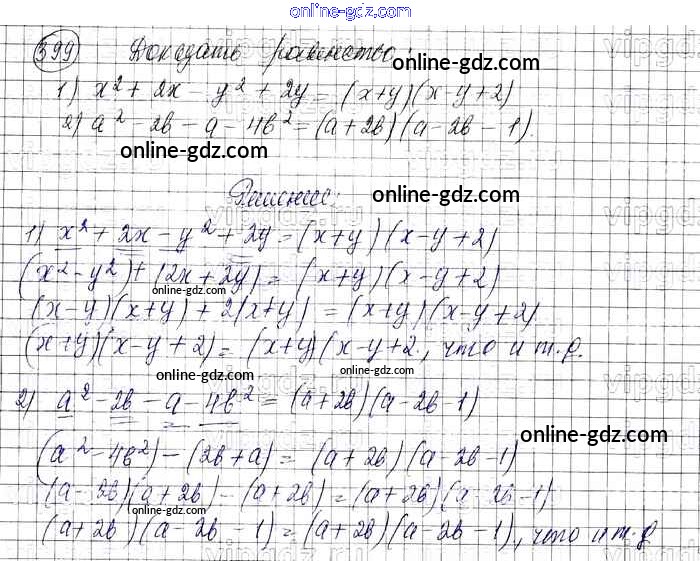 online-gdz.com
399 Доказать равенство:
online-gdz.com
1) x² + 2x - y² + 2y = (x+y)(x-y+2)
2) a² - 2b - a - 4b² = (a+2b)(a-2b-1).
online-gdz.com
Решение:
online-gdz.com
1) x² + 2x - y² + 2y = (x+y)(x-y+2)
(x² - y²) + (2x + 2y) = (x+y)(x-y+2)
online-gdz.com
(x-y)(x+y) + 2(x+y) = (x+y)(x-y+2)
(x+y)(x-y+2) = (x+y)(x-y+2, что и т.д.
online-gdz.com
online-gdz.com
2) a² - 2b - a - 4b² = (a+2b)(a-2b-1)
online-gdz.com
(a² - 4b²) - (2b+a) = (a+2b)(a-2b-1)
online-gdz.com
(a-2b)(a+2b) - (a+2b) = (a+2b)(a-2b-1)
(a+2b)(a-2b-1) = (a+2b)(a-2b-1), что и т.д